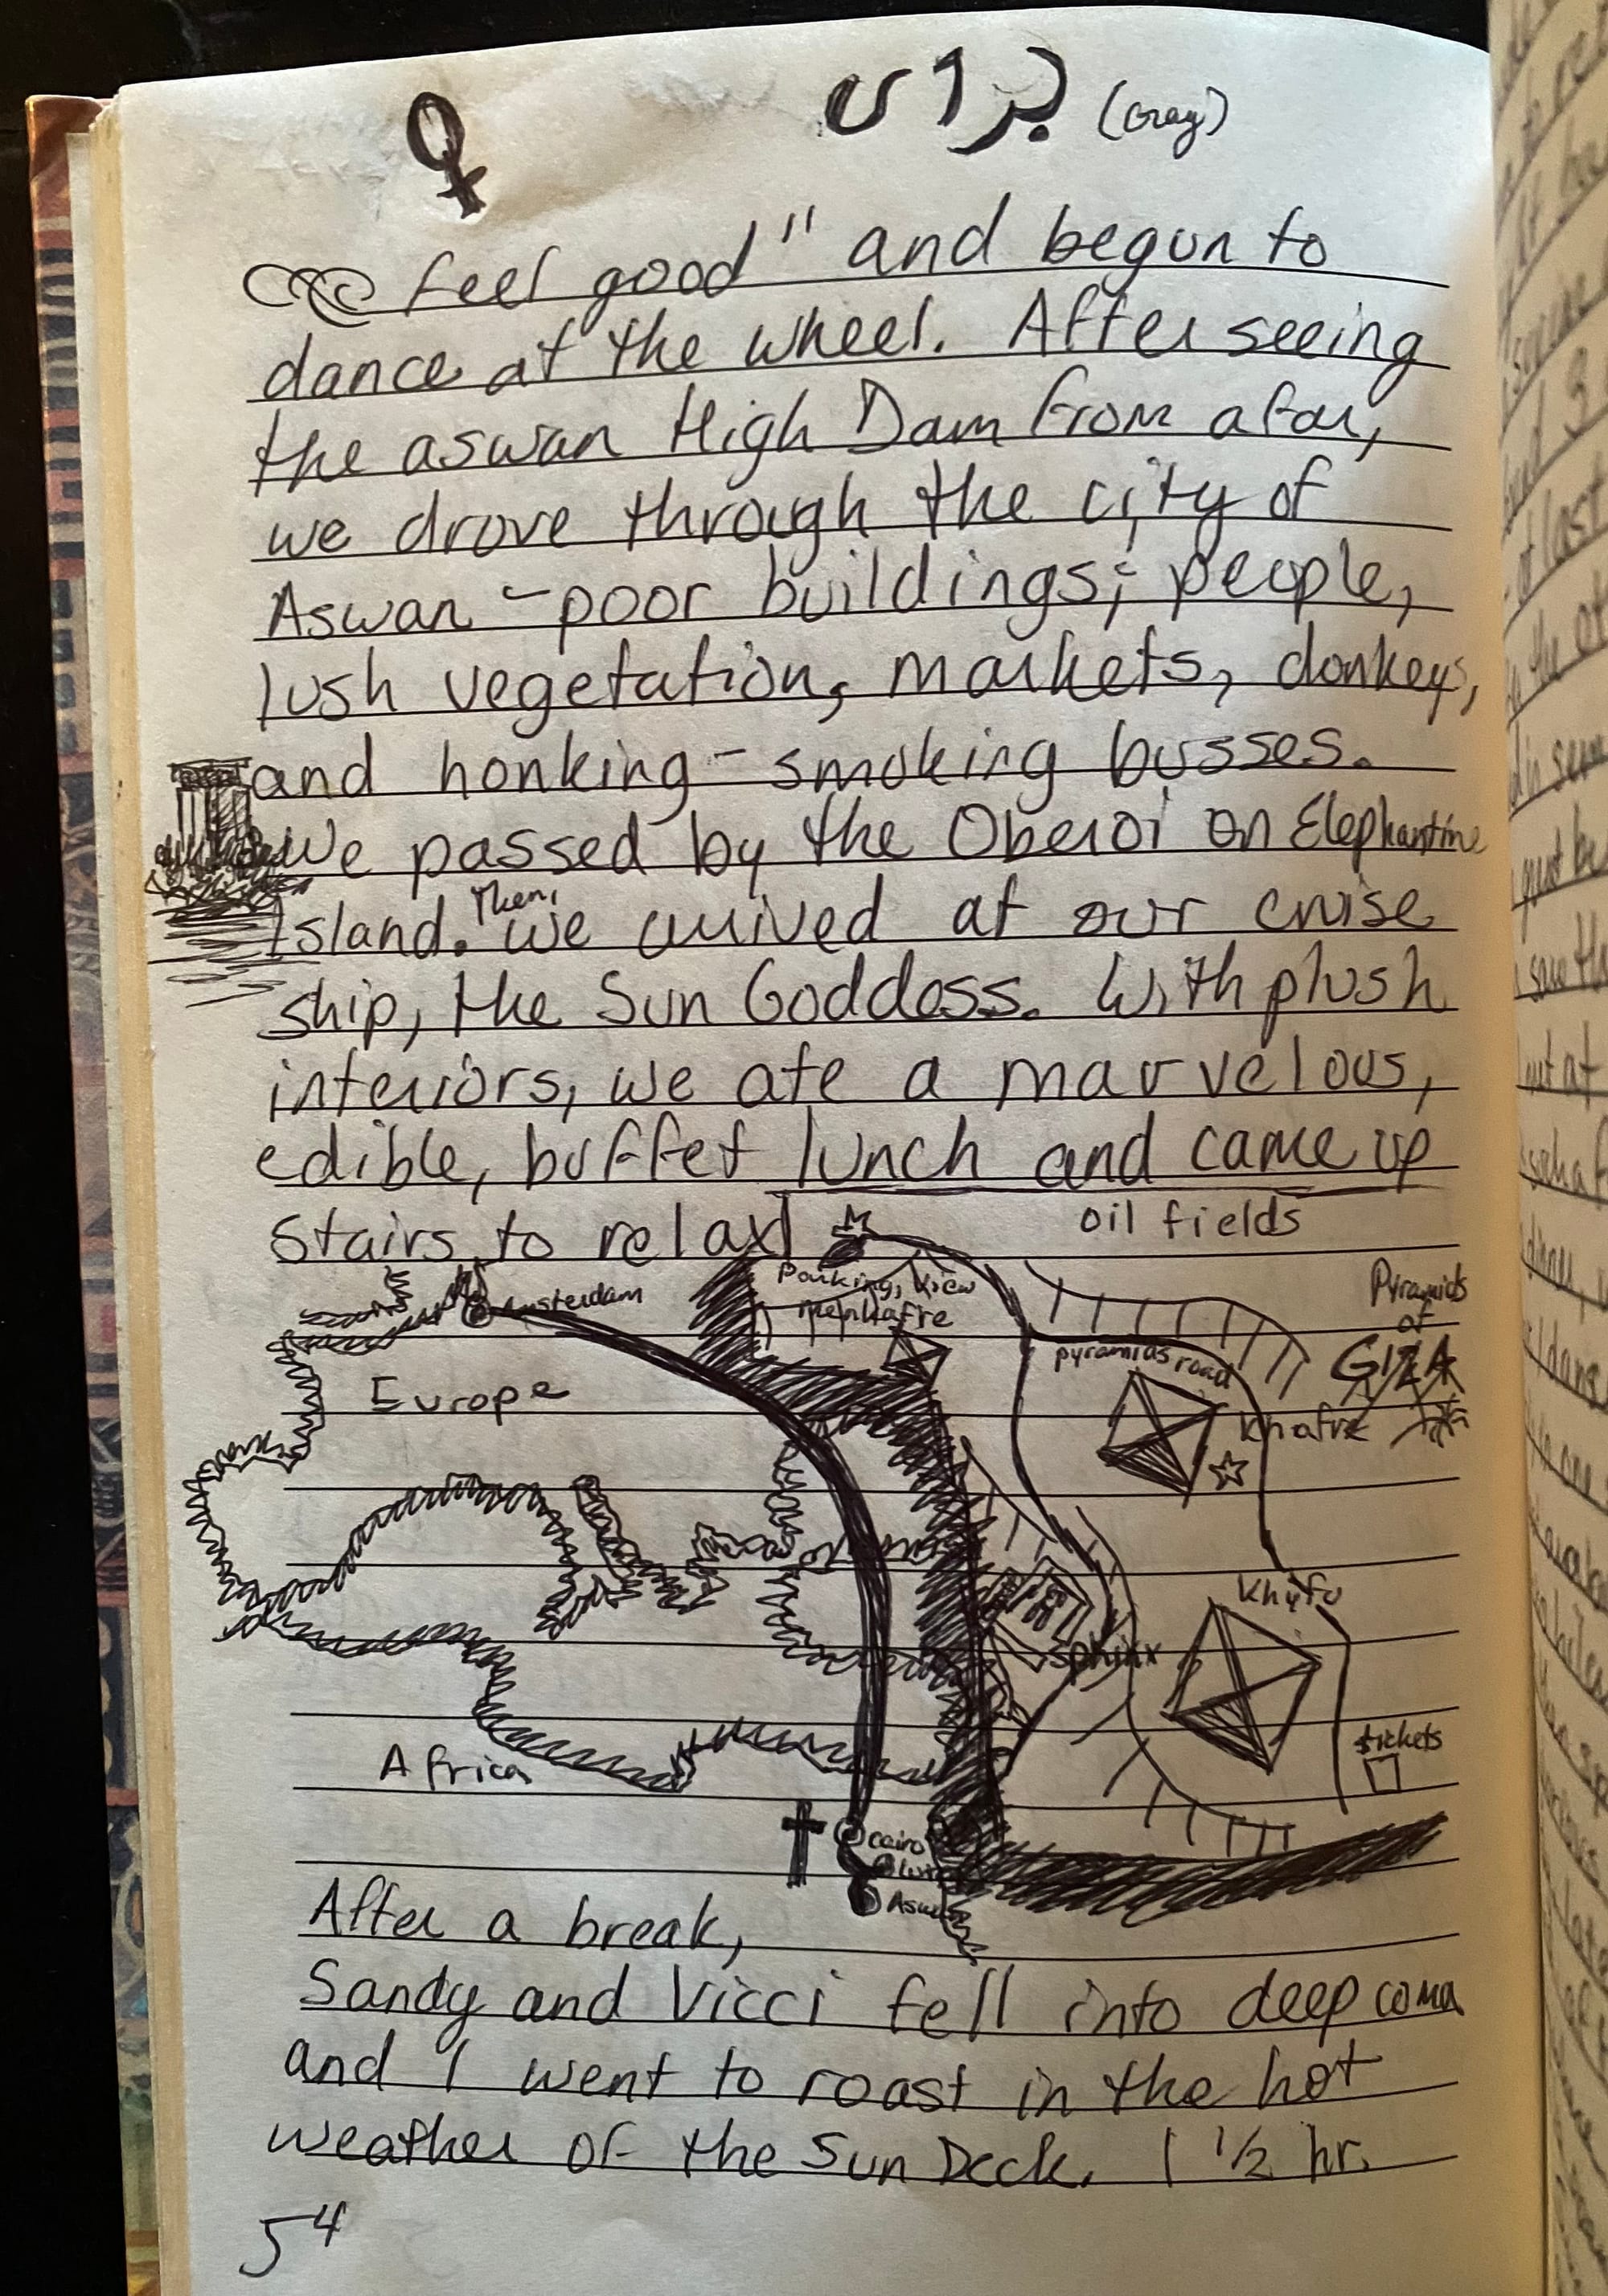 ♀ براى (Gray)
feel good" and begun to
dance at the wheel. After seeing
the aswan High Dam from afar,
we drove through the city of
Aswan - poor buildings; people,
lush vegetation, markets, donkeys,
and honking - smoking busses.
We passed by the Oberoi on Elephantine
Island. Then, we arrived at our cruise
ship, the Sun Goddess. With plush
interiors, we ate a marvelous,
edible, buffet lunch and came up
stairs to relax
oil fields
Parking, View
Menkafre
Amsterdam
Pyramids
of
GIZA
pyramids road
Europe
Khafre
Khufu
sphinx
tickets
Africa
Cairo
Aswan
After a break,
Sandy and Vicci fell into deep coma
and I went to roast in the hot
weather of the Sun Deck. 1 1/2 hr.
54